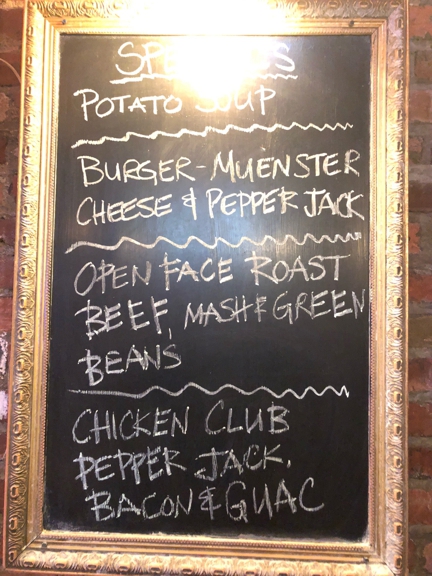 SPECIALS
POTATO SOUP
BURGER-MUENSTER
CHEESE & PEPPER JACK
OPEN FACE ROAST
BEEF, MASH & GREEN
BEANS
CHICKEN CLUB
PEPPER JACK,
BACON & GUAC